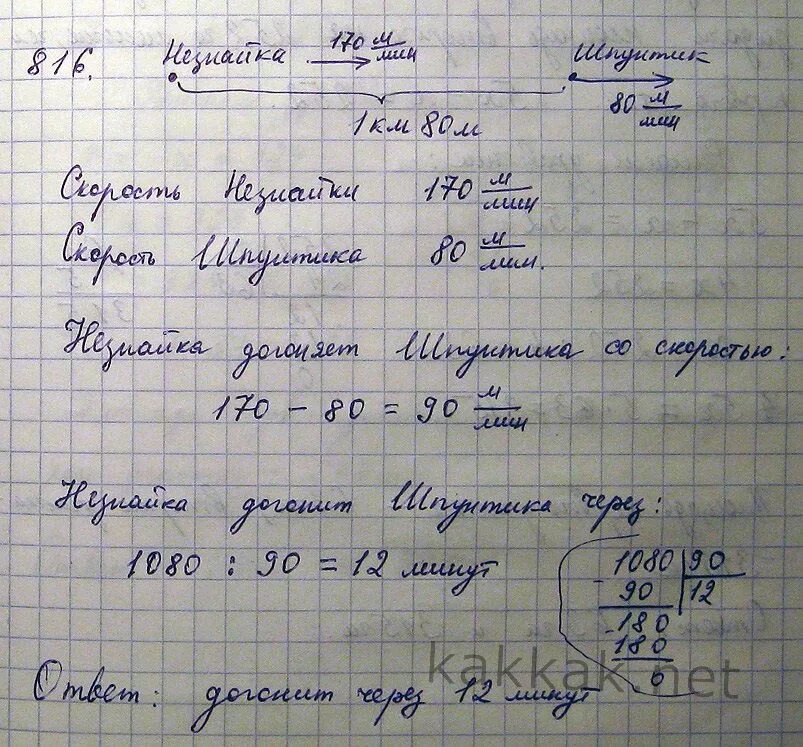 816. Незнайка 170 м/мин Шпунтик
80 м/мин
1 км 80 м
Скорость Незнайки 170 м/мин
Скорость Шпунтика 80 м/мин.
Незнайка догоняет Шпунтика со скоростью:
170 - 80 = 90 м/мин
Незнайка догонит Шпунтика через:
1080 : 90 = 12 минут
1080 | 90
- 90 | 12
- 180
180
0
Ответ: догонит через 12 минут
kakkak.net